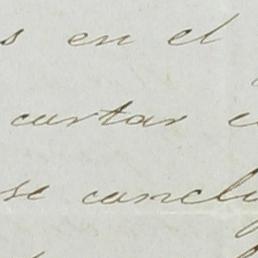 s en el
cortar c
se conclu